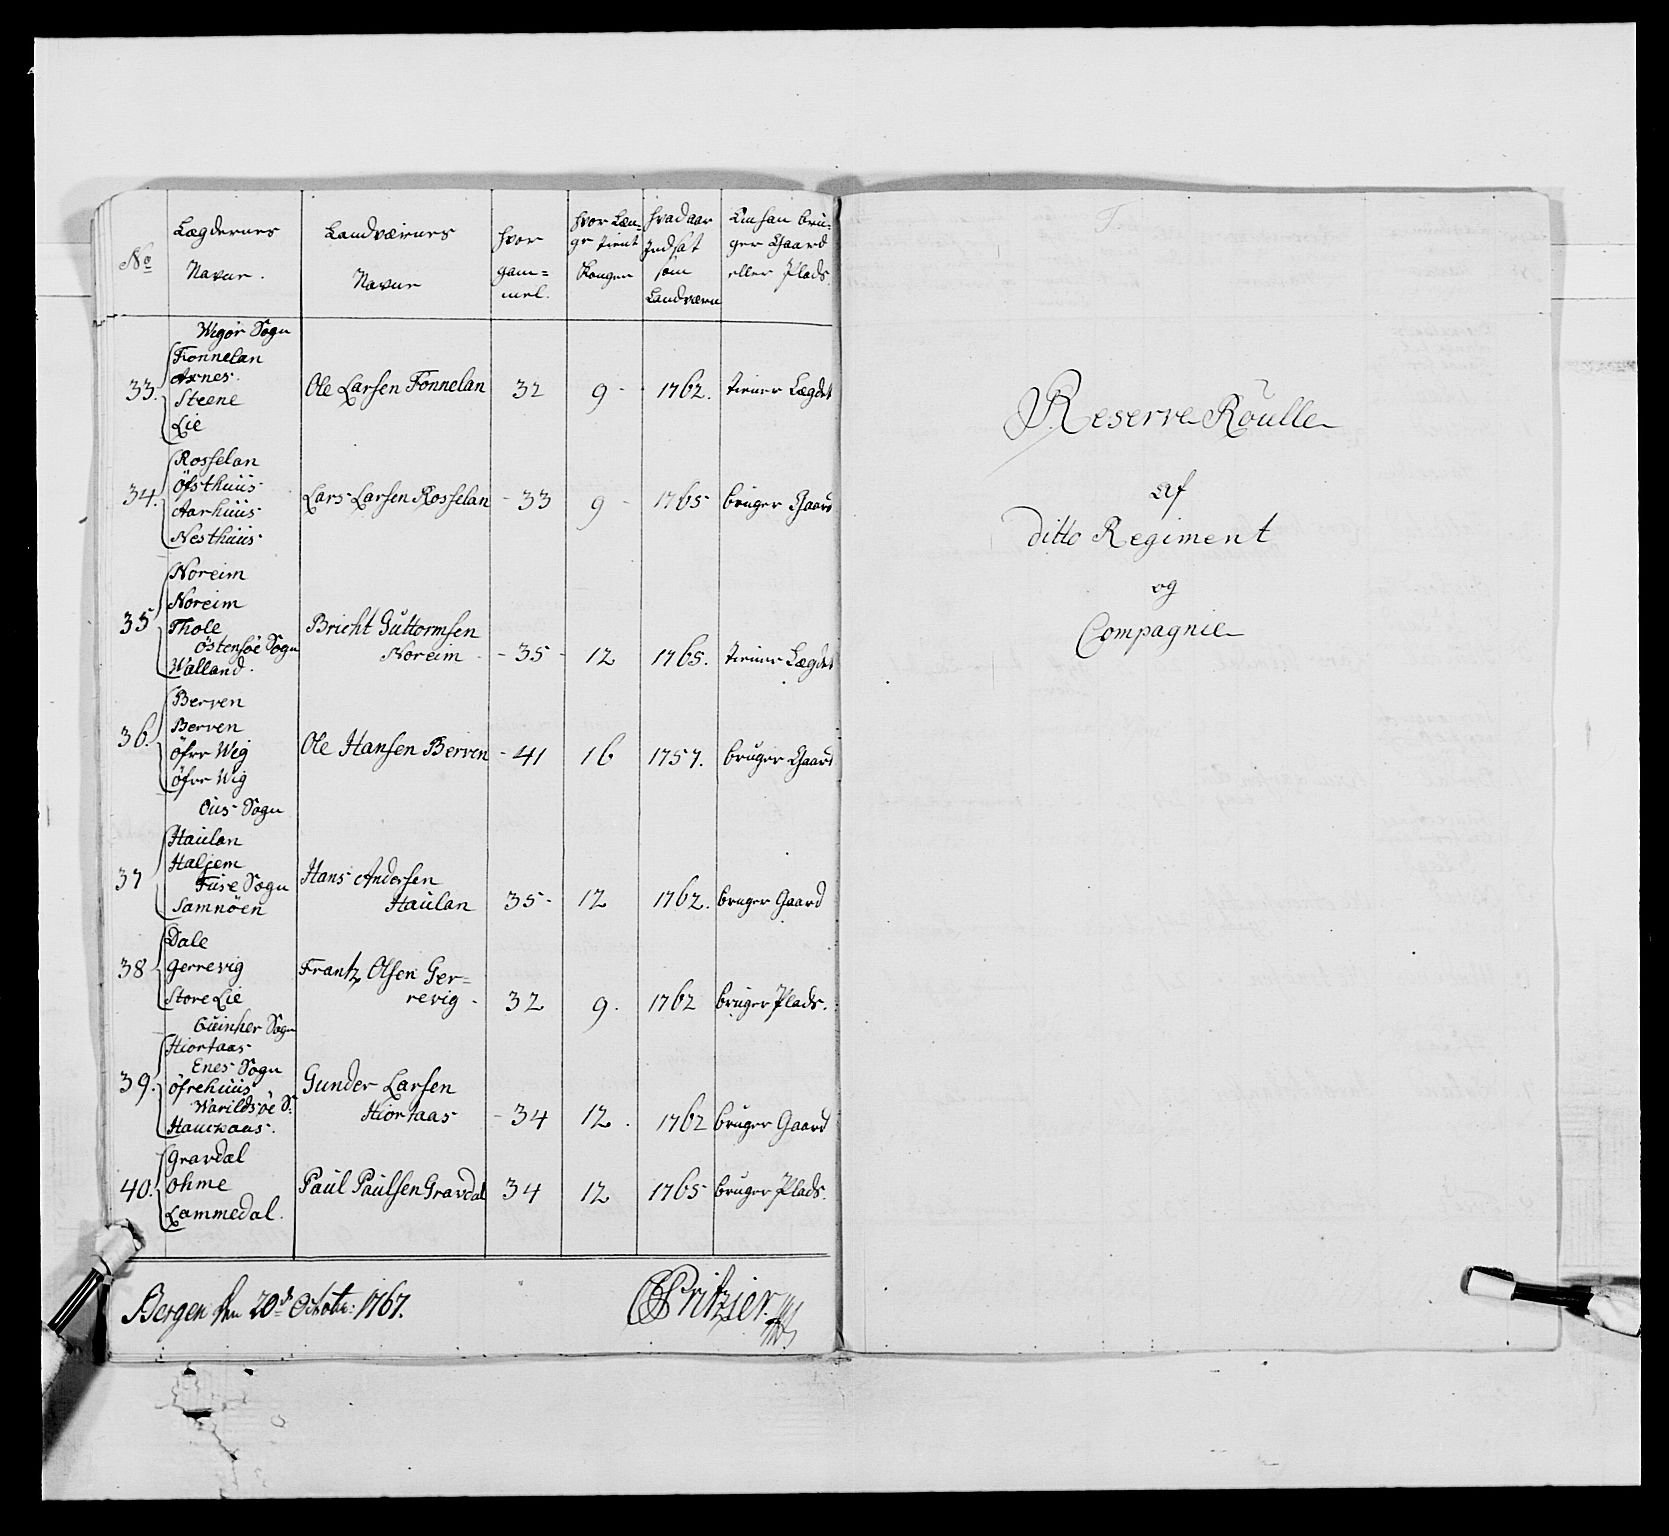 No
Lægdernes
Navne.
Landværnes
Navne
hvor
gam=
mel.
hvor Læn=
ge tient
Kongen
hvad aar
Indsat
som
Landværn
Om han bru=
ger Gaard
eller Plads.
Wigør Sogn
33.
Fonnelan
Axnes.
Steene
Lie
Ole Larsen Fonnelan 32 9 - 1762. tiener Lægdet
34.
Rosselan
Öfsthuus
Aarhuus
Nesthuus
Lars Larsen Rosselan - 33 9 - 1765 bruger Gaard
35
Noreim
Noreim
Thole
Östensöe Sogn
Walland.
Bricht Guttormsen
Noreim - 35 - 12 1765. tiener Lægdet
36.
Berven
Berven
öfre Wig
öfre Wig
Ole Hansen Berven - 41 16 1757. bruger Gaard
Ous Sogn
37
Haulan
Haljem
Fuse Sogn
Samnöen
Hans Andersen
Haulan 35 - 12 1762. bruger Gaard
38
Dale
Gerrevig
Store Lie
Frantz Olsen Ger=
revig - 32 9. 1762 bruger Plads.
Guinher Sogn
39.
Hiortaas
Enes Sogn
öfrehuus
Warildsöe S.
Hauckaas.
Gunder Larsen
Hiortaas - 34 12. 1762 bruger Gaard
40.
Gravdal
Ohme
Lammedal.
Paul Paulsen Gravdal 34 12 1765 bruger Plads.
Bergen den 20de Octobr: 1767.
Pritzier
Reserve Roulle
Af
ditto Regiment
og
Compagnie